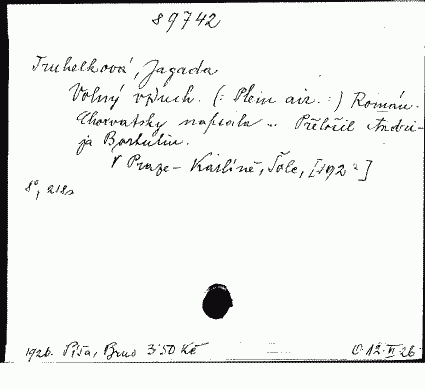 89742
Truhelková, Jagoda
Volný vzduch. (: Plein air. :) Román.
Chorvatsky napsala .. Přeložil Andri-
ja Borlulin.
V Praze - Karlíně, Šolc, [192-]
8°, 218s
1926. Píša, Brno 3·50 Kč C 12·VI 26